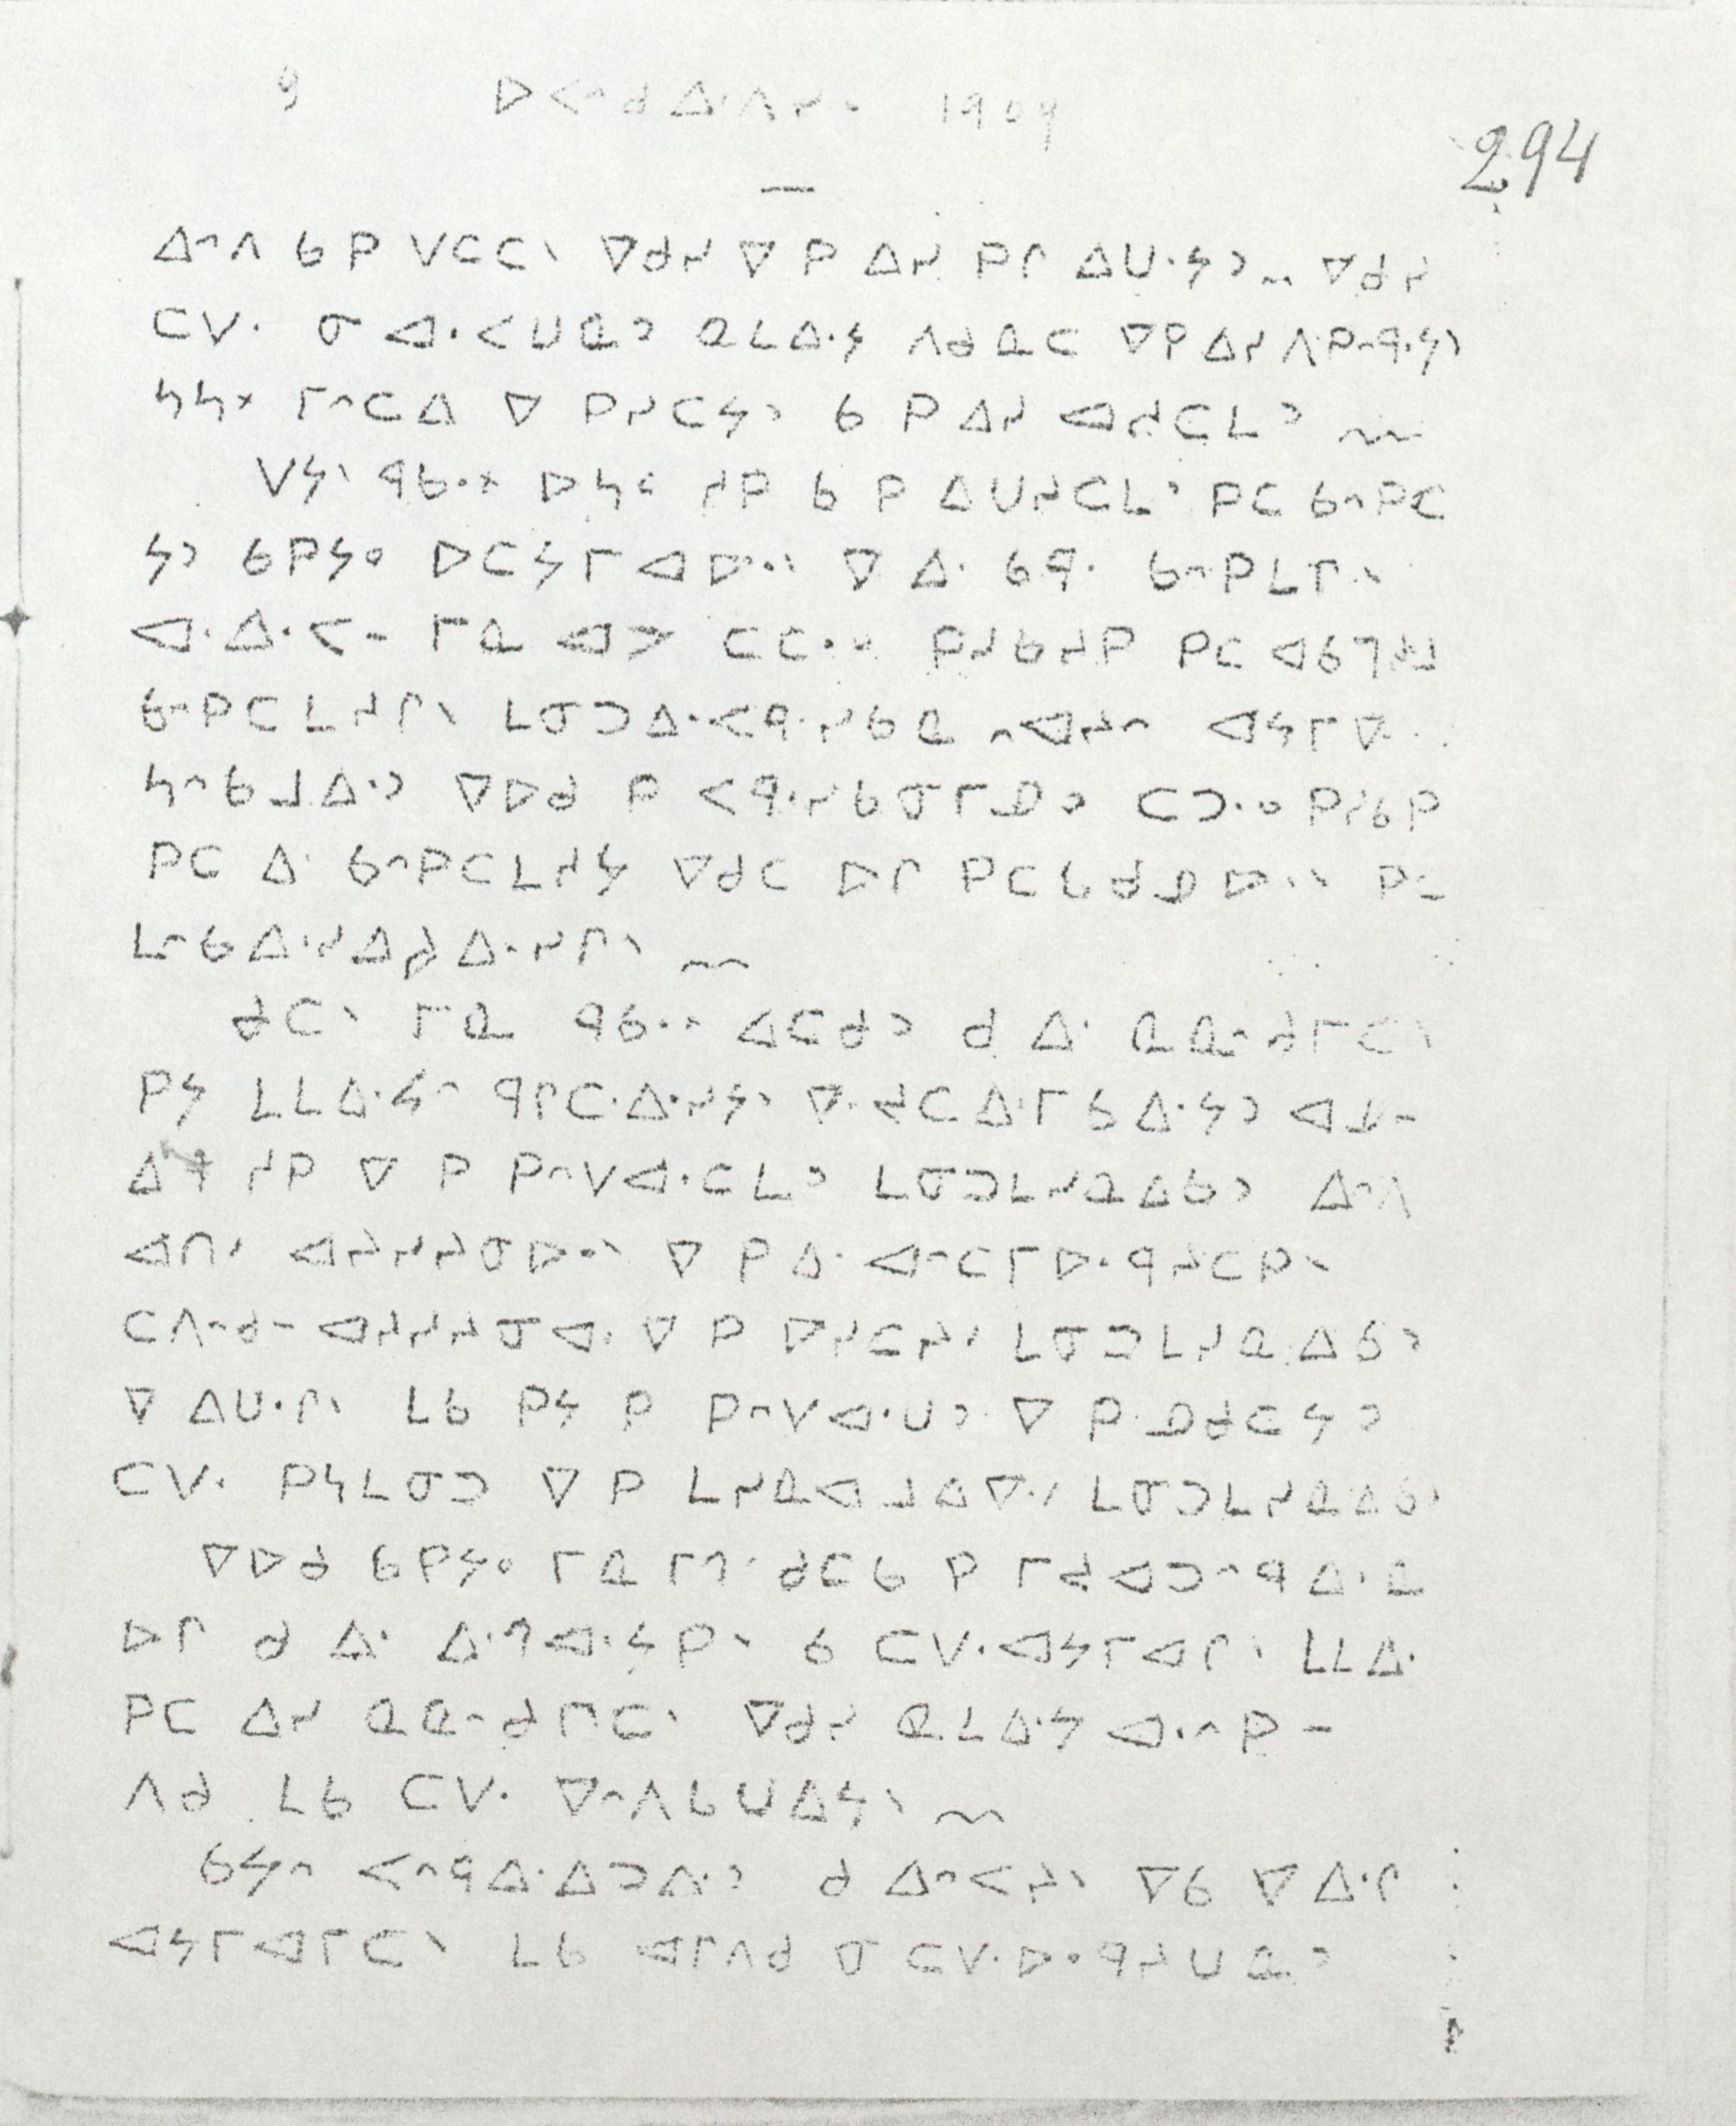 9 ᐅᐸᐢᑯᐏᐱᓯᒼ 1909
294
ᐃᐢᐱ ᑲ ᑭ ᐯᑕᑕᐠ ᐁᑯᓯ ᐁ ᑭ ᐃᓯ ᑭᒋ ᐃᑌᐧᔭᐣ ᐁᑯᓯ
ᑕᐯᐧ ᓂ ᐊᐧᐸᑌᓇᐣ ᓇᒪᐃᐧᔭ ᐱᑯᓇᑕ ᐁᑭ ᐃᓯ ᐱᑭᐢᑫᐧᔭᐣ
ᓴᓴᕽ ᒥᐢᑕᐃ ᐁ ᑭᓯᑕᔭᐣ ᑲ ᑭ ᐃᓯ ᐊᓯᑕᒪᐣ
ᐯᔭᐠ ᑫᑲᐧᕽ ᐅᓴᒼ ᓯᑭ ᑲ ᑭ ᐃᑌᓯᑕᒪᐣ ᑭᑕ ᑲᐢᑭᑕ
ᔭᐣ ᑲᑭᔭᐤ ᐅᑕᔭᒥᐊᐅᐧᐠ ᐁ ᐃᐧ ᑲᑫᐧ ᑲᐢᑭᒪᒥᐠ
ᐊᐧᐃᐧᐸᐨ ᒥᓇ ᐊᔪ ᑕᑕᐧᕽ ᑭᓯᑲᓯᑭ ᑭᑕ ᐊᑲᒉᓯᒧ
ᑲᐢᑭᑕᒪᓯᒋᐠ ᒪᓂᑐᐃᐧᐸᑫᐧᓯᑲᓇ ᐢᐊᓯᐢ ᐊᔭᒥᐁ
ᓴᐢᑲᒧᐃᐧᐣ ᐁᐅᑯ ᑭ ᐸᑫᐧᓯᑲᓂᒥᓄᐣ ᑕᑐᐧᐤ ᑭᓯᑲᑭ
ᑭᑕ ᐃᐧ ᑲᐢᑭᑕᒪᓯᔭ ᐁᑯᑕ ᐅᒋ ᑭᑕᑲᑯᓄᐅᐧᐠ ᑭᐨ
ᒪᐢᑲᐃᐧᓯᐃᔨᐃᐧᓯᒋᐠ
ᑯᑕᐠ ᒥᓇ ᑫᑲᐧᕽ ᐃᑕᑯᐣ ᑯ ᐃᐧ ᓇᓇᐢᑯᒥᑕᐠ
ᑭᔭ ᒪᒪᐃᐧᔭᐢ ᑫᒋᑕᐧᐃᐧᓯᔭᐣ ᐁᐧ ᓯᑕᐃᐧᒥᑲᐃᐧᔭᐣ ᐊᒧᐨ
ᓯᑭ ᐁ ᑭ ᑭᐢᐯᐊᐧᑕᒪᐣ ᒪᓂᑐᒪᓯᓇᐃᑲᐣ ᐃᐢᐱ
ᐊᑎᐟ ᐊᔨᓯᔨᓂᐅᐧᐠ ᐁ ᑭ ᐃᐧ ᐊᐢᑕᒥᐅᐧᑫᓯᑕᑭᐠ
ᑕᐱᐢᑯᐨ ᐊᔨᓯᔨᓂᐊᐧ ᐁ ᑭ ᐅᓯᑕᓯᐟ ᒪᓂᑐᒪᓯᓇᐃᑲᐣ
ᐁ ᐃᑌᐧᒋᐠ ᒪᑲ ᑭᔭ ᑭ ᑭᐢᐯᐊᐧᑌᐣ ᐁ ᑭ ᓄᑯᑕᔭᐣ
ᑕᐯᐧ ᑭᓴᒪᓂᑐ ᐁ ᑭ ᒪᓯᓇᐊᒧᐃᐁᐧᐟ ᒪᓂᑐᒪᓯᓇᐃᑲᐣ
ᐁᐅᑯ ᑲᑭᔭᐤ ᒥᓇ ᒥᒉᐟ ᑯᑕᑲ ᑭ ᒥᓯᐊᑐᐢᑫᐃᐧᓇ
ᐅᒋ ᑯ ᐃᐧ ᐃᐧᒉᐊᐧᔭᑭᐠ ᑲ ᑕᐯᐧᐊᔭᒥᐊᒋᐠ ᒪᒪᐃᐧ
ᑭᑕ ᐃᓯ ᓇᓇᐢᑯᒥᑕᐠ ᐁᑯᓯ ᓇᒪᐃᐧᔭ ᐊᐧᐢᑭᐨ
ᐱᑯ ᒪᑲ ᑕᐯᐧ ᐁᐢᐱᑲᑌᐃᔭᐠ
ᑲᔭᐢ ᐸᐢᑫᐃᐧᐃᑐᐱᐧᐣ ᑯ ᐃᐢᐸᔨᐠ ᐁᑲ ᐁ ᐃᐧᒋ
ᐊᔭᒥᐊᒥᑕᐠ ᒪᑲ ᐊᒋᐱᑯ ᓂ ᑕᐯᐧᐅᐧᑫᓯᑌᓇᐣ